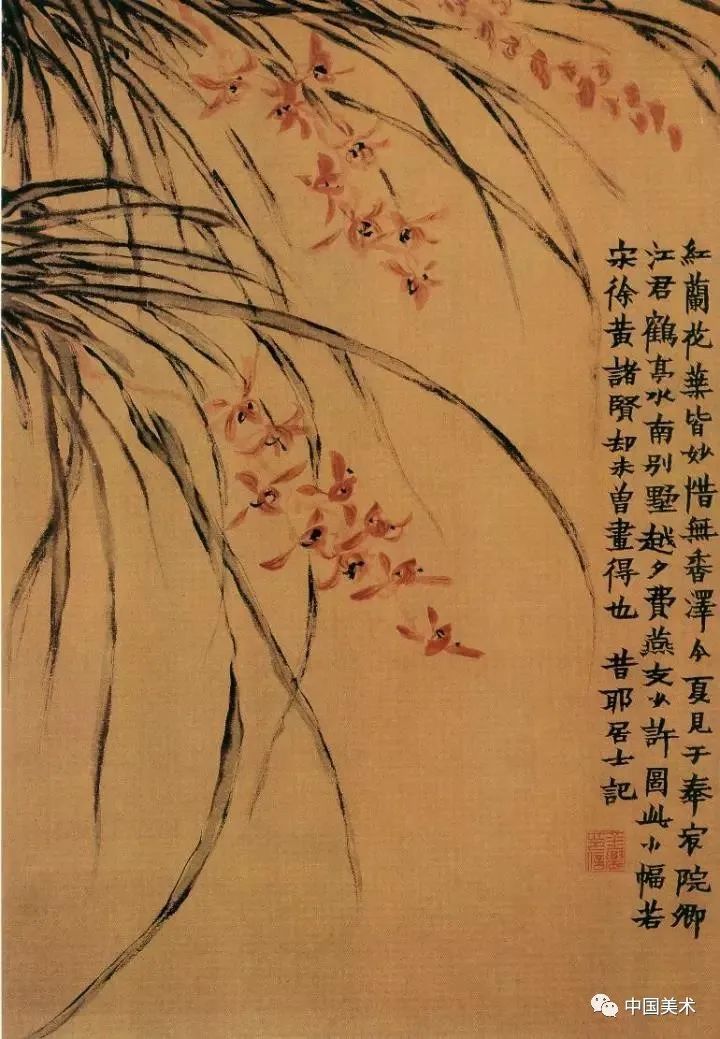 紅蘭花葉皆妙惜無香澤今夏見于奉宸院卿
江君鶴亭水南別墅越夕費燕支少許圖此小幅若
宋徐黃諸賢却未曾畫得也 昔耶居士記
金農印信
中国美术